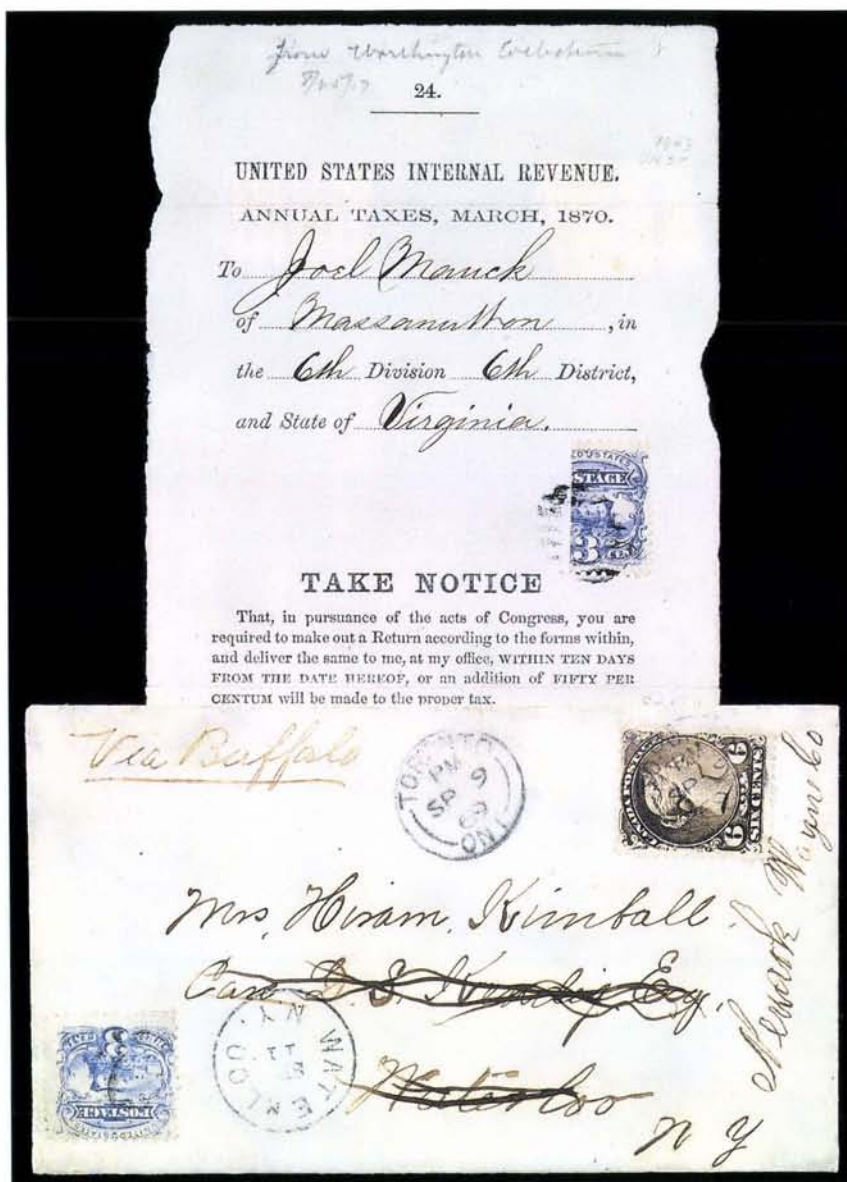 from Worthington
24.
UNITED STATES INTERNAL REVENUE.
ANNUAL TAXES, MARCH, 1870.
To Joel Mauck
of Massanutton, in
the 6th Division 6th District,
and State of Virginia.
STAGE
3
TAKE NOTICE
That, in pursuance of the acts of Congress, you are
required to make out a Return according to the forms within,
and deliver the same to me, at my office, WITHIN TEN DAYS
FROM THE DATE HEREOF, or an addition of FIFTY PER
CENTUM will be made to the proper tax.
Via Buffalo
TORONTO
PM
SP 9
69
ONT
6
SIX CENTS
6
Mrs, Hiram, Kimball
Esq.
Waterloo
N Y
Newark Wayne Co
WATERLOO N.Y.
11
UNITED STATES
POSTAGE
3